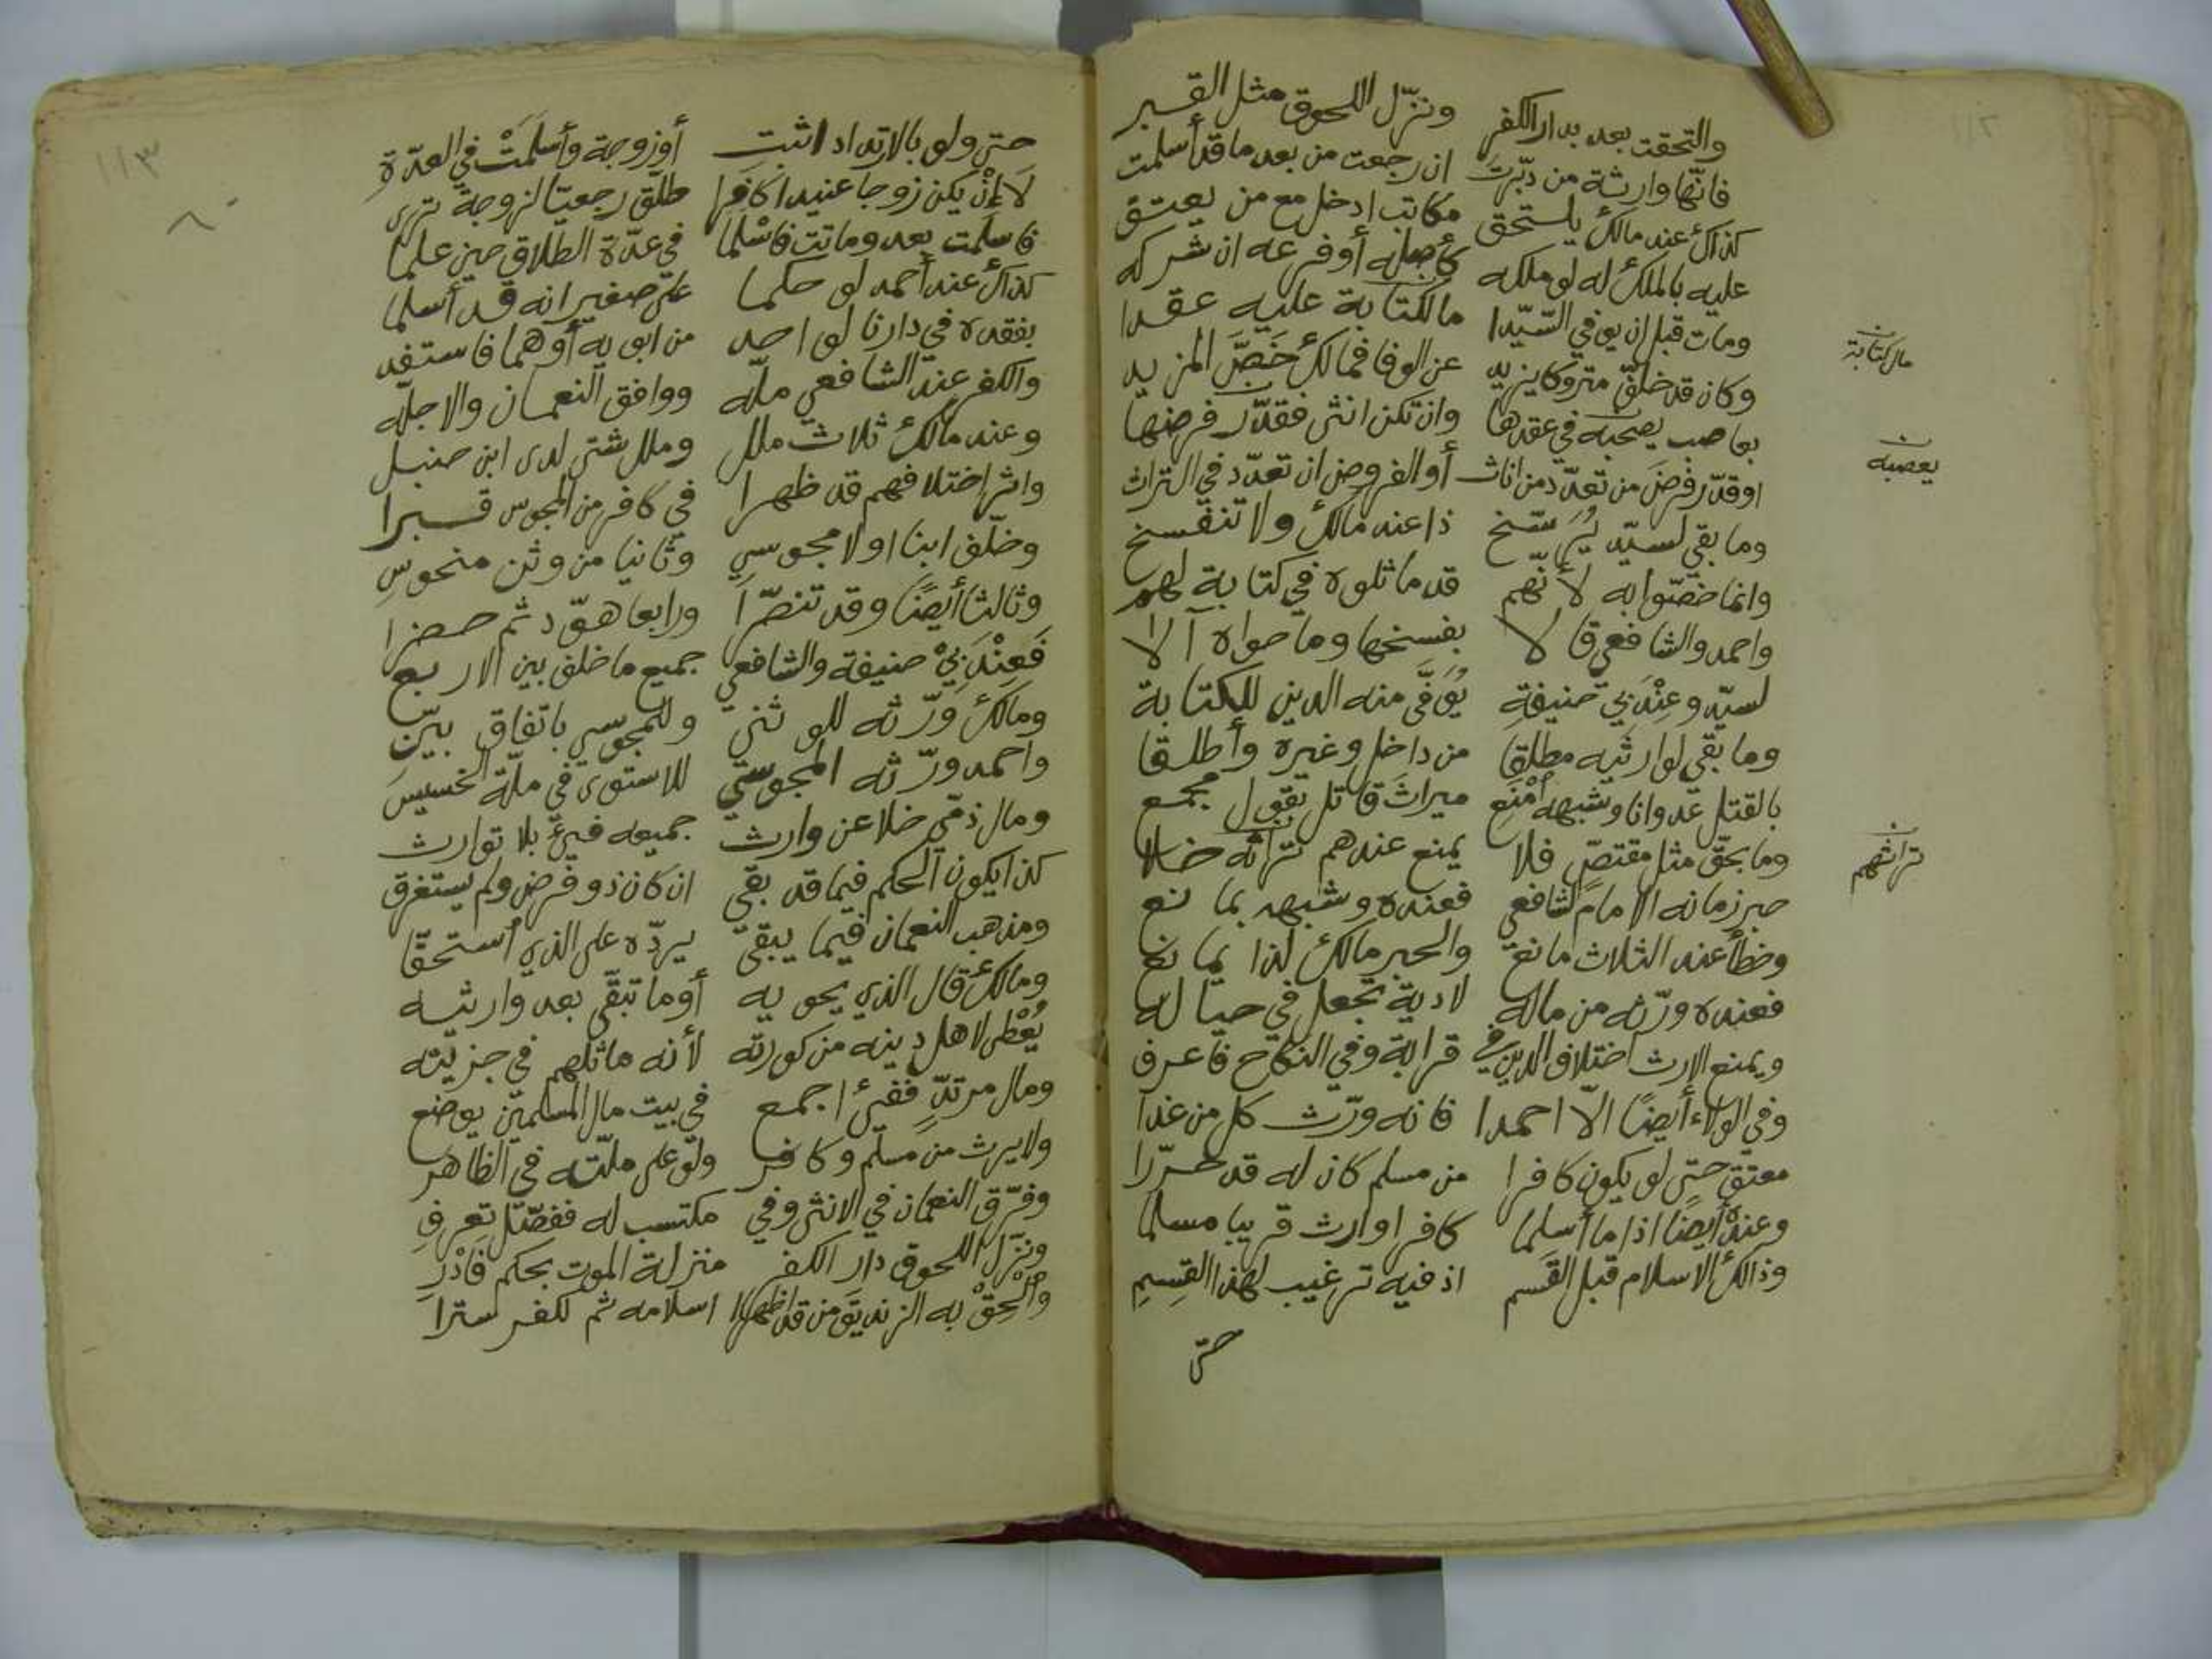 ١١٢
والتحقت بعد بدار الكفر ونزّل اللحوق مثل القبر
فانّها وارثة من دبّرت ان رجعت من بعد ما قد أسلمت
كذاك عند مالك يستحق مكاتب ادخل مع من يعتق
عليه بالملك له لو ملكه كأصله أو فرعه ان شركه
ومات قبل ان يوفي السّيّدا مال كتابة عليه عقدا
مال كتابة
وكان قد خلّف متروكا يزيد عن الوفا فمالك خصّ المزيد
بعاصب يصحبه في عقدها وان تكن انثى فقدّر فرضها
يعصبه
او قدّر فرض من تعدّد من اناث أو الفروض ان تعدّد في التراث
وما بقي لسيّد يُرَسّخ ذا عند مالك ولا تنفسخ
وانما خصّوا به لأنّهم قد ماثلوه في كتابة لهم
واحمد والشافعي قالا بفسخها وما حواه آلا
لسيّد وعِنْدَ بي حنيفةِ يُوَفَّى منه الدين للكتابة
وما بقي لوارثيه مطلقا من داخل وغيره وأطلقا
بالقتل عدوانا وشبهه أمْنَعِ ميراثَ قاتل بقول مجمع
وما بحقّ مثل مقتصّ فلا يمنع عندهم تراثه خلا
تراثهم
حبر زمانه الامام الشافعي فعنده وشبهه بما نع
وخطأ عند الثلاث مانع والحبر مالك لذا بمانع
فعنده ورّثه من ماله لا دية تجعل في حياله
ويمنع الارث اختلاف الدين في قرابة وفي النكاح فاعرف
وفي الولاء أيضًا الّا احمدا فانه ورّث كل من غدا
معتق حتى لو يكون كافرا من مسلم كان له قد حرّرا
وعنده أيضًا اذا ما أسلما كافر او ارث قريبا مسلما
وذالك الاسلام قبل القَسم اذ فيه ترغيب لهذا القِسِمِ
حتى
١١٣
حتى ولو بالارتداد اثبت أو زوجة وأسلَمَتْ في العدّةِ
لَا إنْ يكن زوجا عنيدا كافرا طلّق رجعيّا لزوجة ترى
فاسلمت بعد وماتت فاسْلما في عدّة الطلاق حين علما
كذاك عند أحمد لو حكما على صغير انه قد أسلما
بفقده في دارنا لواحد من ابويه أو هما فاستفد
والكفر عند الشافعي ملّه ووافق النعمان والاجلّه
وعند مالك ثلاث ملل وملل شتى لدى ابن حنبل
واثر اختلافهم قد ظهرا في كافر من المجوس قبرا
وخلّف ابنا اولا مجوسي وثانيا من وثن منحوسِ
وثالثا أيضًا وقد تنصّرا ورابعا هوّد ثم حضرا
فَعِنْدَ بيْ حنيفة والشافعي جميع ما خلف بين الاربع
ومالك ورّثه للوثني وللمجوسي باتفاق بيّن
واحمد ورّثه المجوسي للاستوى في ملّة الخسيس
ومال ذمّي خلا عن وارث جميعه فيءٌ بلا توارث
كذا يكون الحكم فيما قد بقي ان كان ذو فرض ولم يستغرق
ومذهب النعمان فيما يبقى يردّه على الذي استحقّا
ومالك قال الذي يحويه أو ما تبقّى بعد وارثيه
يُعْطى لاهل دينه من كورته لأنه ماثلهم في جزيته
ومال مرتدّ ففيءٌ اجمع في بيت مال المسلمين يوضع
ولا يرث من مسلم وكافر ولو على ملّته في الظاهر
وفرّق النعمان في الانثى وفي مكتسب له ففصّل تعرفِ
ونزّل اللحوق دار الكفر منزلة الموت بحكم فادْرِ
وألْحِقْ به الزنديق من قد اظهرا اسلامه ثم لكفر سترا